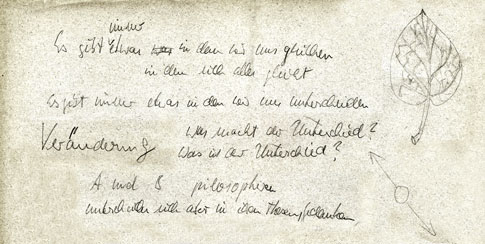 immer
Es gibt Etwas in dem wir uns gleichen
in dem sich alles gleicht
Es gibt immer etwas in dem wir uns unterscheiden
Was macht der Unterschied?
Veränderung
Was ist der Unterschied?
A und B pilosophieren
unterscheiden sich aber in ihren